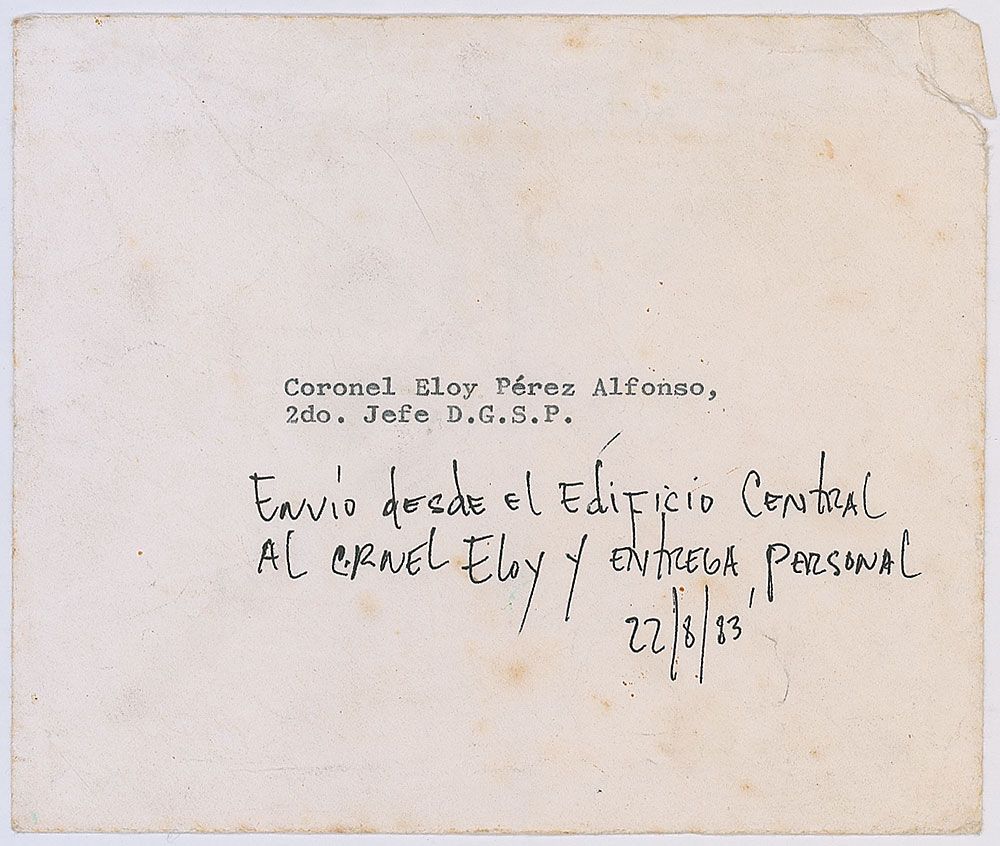 Coronel Eloy Pérez Alfonso,
2do. Jefe D.G.S.P.
Envío desde el Edificio Central
Al CRNEL Eloy y ENTREGA PERSONAL
22/8/83'